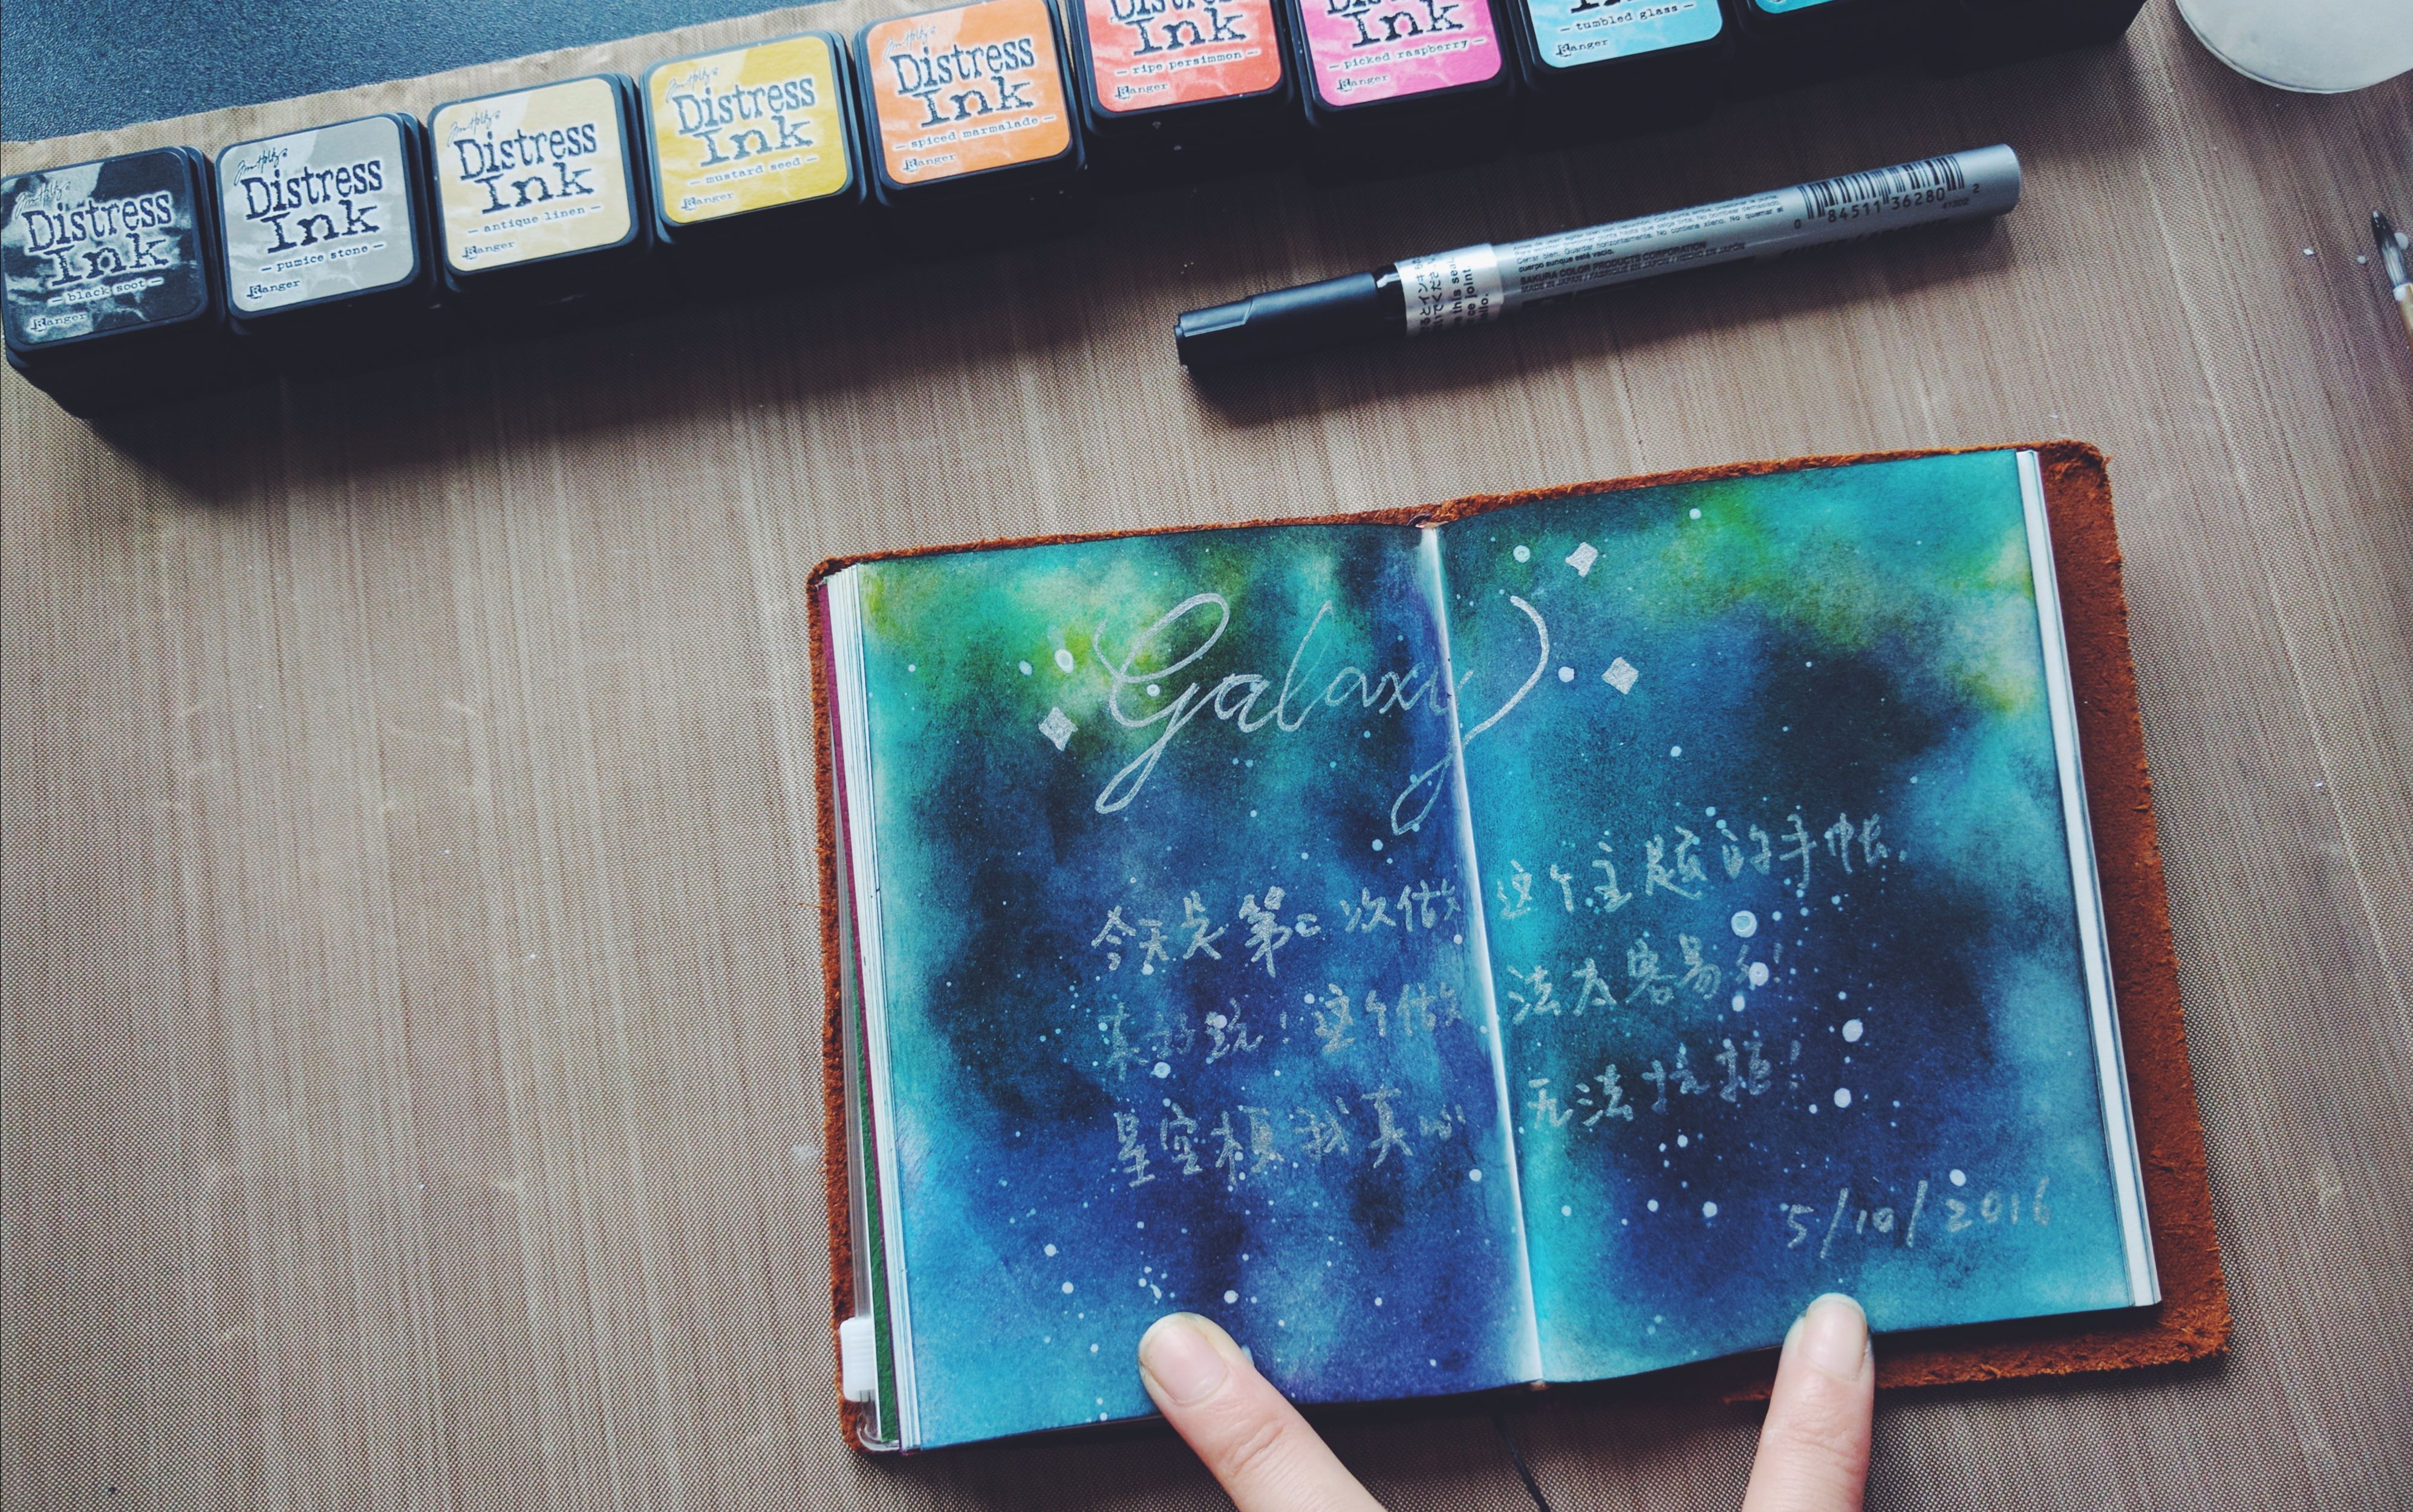 Distress Ink
black soot
Ranger
Distress Ink
pumice stone
Ranger
Distress Ink
antique linen
Ranger
Distress Ink
mustard seed
Ranger
Distress Ink
spiced marmalade
Ranger
Distress Ink
ripe persimmon
Ranger
Ink
picked raspberry
Ranger
tumbled glass
Ranger
0 84511 36280 2
SAKURA COLOR PRODUCTS CORPORATION
Galaxy
今天是第二次做这个主题的手帐.
来的玩!这个做法太容易了!
星空模我真心无法抗拒!
5/10/2016